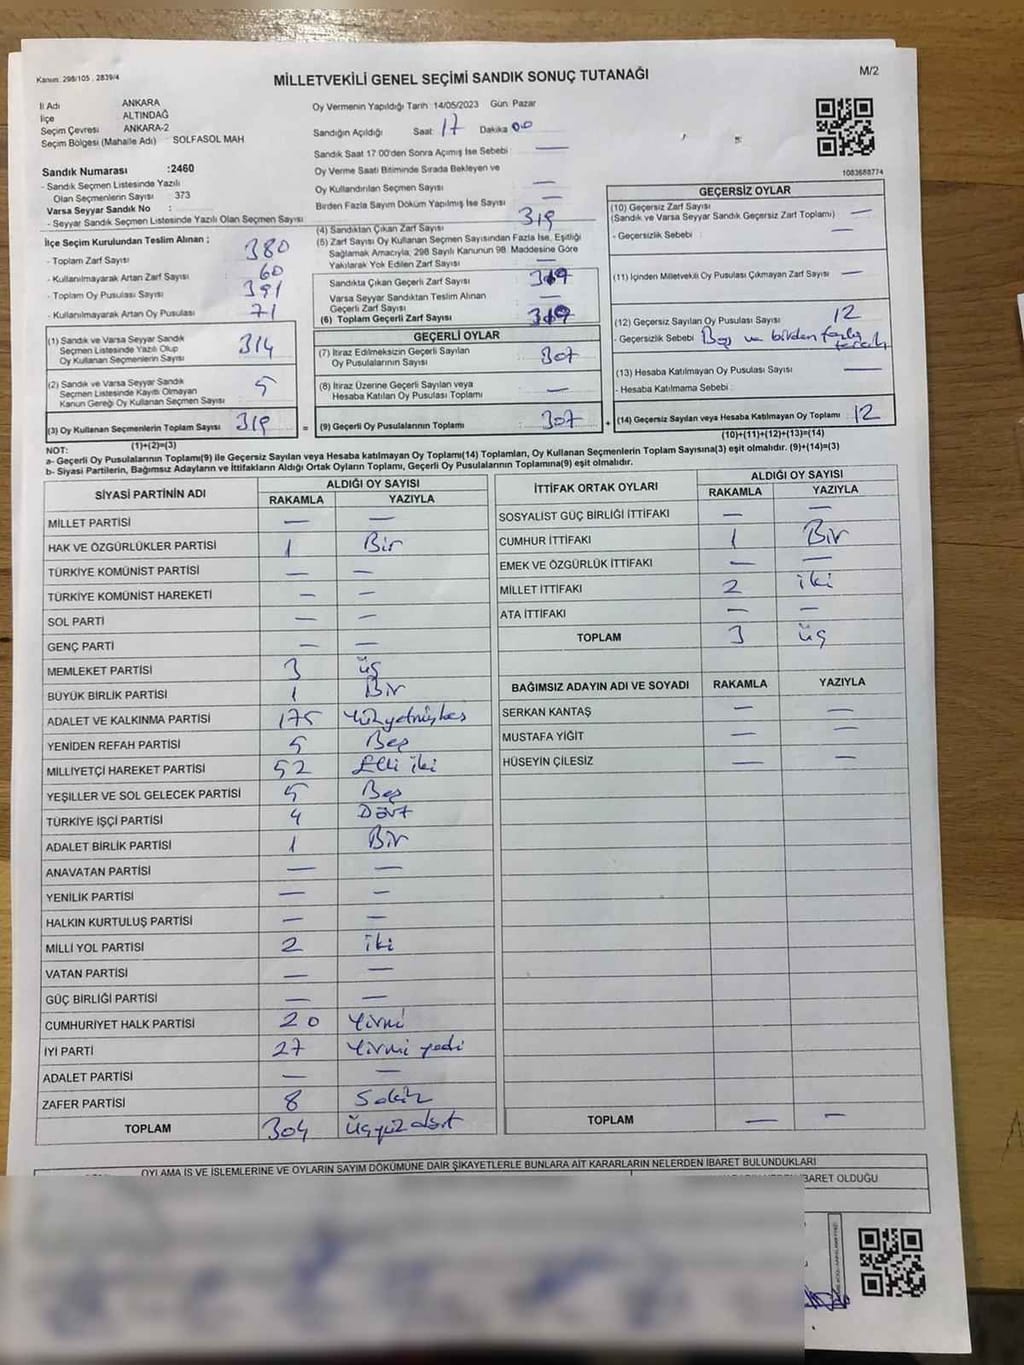 Kanun: 298/105 , 2839/4
MİLLETVEKİLİ GENEL SEÇİMİ SANDIK SONUÇ TUTANAĞI
M/2
İl Adı ANKARA
İlçe ALTINDAĞ
Seçim Çevresi ANKARA-2
Seçim Bölgesi (Mahalle Adı) SOLFASOL MAH
Oy Vermenin Yapıldığı Tarih :14/05/2023 Gün: Pazar
Sandığın Açıldığı Saat: 17 Dakika 00
Sandık Saat 17:00'den Sonra Açımış İse Sebebi : —
Oy Verme Saati Bitiminde Sırada Bekleyen ve
Oy Kullandırılan Seçmen Sayısı —
Birden Fazla Sayım Döküm Yapılmış İse Sayısı —
1083688774
Sandık Numarası :2460
- Sandık Seçmen Listesinde Yazılı
Olan Seçmenlerin Sayısı 373
Varsa Seyyar Sandık No :
- Seyyar Sandık Seçmen Listesinde Yazılı Olan Seçmen Sayısı
İlçe Seçim Kurulundan Teslim Alınan ;
- Toplam Zarf Sayısı 380
- Kullanılmayarak Artan Zarf Sayısı 60
- Toplam Oy Pusulası Sayısı 391
- Kullanılmayarak Artan Oy Pusulası 71
(1) Sandık ve Varsa Seyyar Sandık
Seçmen Listesinde Yazılı Olup
Oy Kullanan Seçmenlerin Sayısı 314
(2) Sandık ve Varsa Seyyar Sandık
Seçmen Listesinde Kayıtlı Olmayan
Kanun Gereği Oy Kullanan Seçmen Sayısı 5
(3) Oy Kullanan Seçmenlerin Toplam Sayısı 319
(1)+(2)=(3)
(4) Sandıktan Çıkan Zarf Sayısı 319
(5) Zarf Sayısı Oy Kullanan Seçmen Sayısından Fazla İse, Eşitliği
Sağlamak Amacıyla, 298 Sayılı Kanunun 98. Maddesine Göre
Yakılarak Yok Edilen Zarf Sayısı —
Sandıkta Çıkan Geçerli Zarf Sayısı 319
Varsa Seyyar Sandıktan Teslim Alınan
Geçerli Zarf Sayısı —
(6) Toplam Geçerli Zarf Sayısı 319
GEÇERLİ OYLAR
(7) İtiraz Edilmeksizin Geçerli Sayılan
Oy Pusulalarının Sayısı 307
(8) İtiraz Üzerine Geçerli Sayılan veya
Hesaba Katılan Oy Pusulası Toplamı —
= (9) Geçerli Oy Pusulalarının Toplamı 307 +
GEÇERSİZ OYLAR
(10) Geçersiz Zarf Sayısı
(Sandık ve Varsa Seyyar Sandık Geçersiz Zarf Toplamı) —
- Geçersizlik Sebebi : —
(11) İçinden Milletvekili Oy Pusulası Çıkmayan Zarf Sayısı —
(12) Geçersiz Sayılan Oy Pusulası Sayısı 12
- Geçersizlik Sebebi Boş ve birden fazla
tercih
(13) Hesaba Katılmayan Oy Pusulası Sayısı —
- Hesaba Katılmama Sebebi :
(14) Geçersiz Sayılan veya Hesaba Katılmayan Oy Toplamı 12
(10)+(11)+(12)+(13)=(14)
NOT:
a- Geçerli Oy Pusulalarının Toplamı(9) ile Geçersiz Sayılan veya Hesaba katılmayan Oy Toplamı(14) Toplamları, Oy Kullanan Seçmenlerin Toplam Sayısına(3) eşit olmalıdır. (9)+(14)=(3)
b- Siyasi Partilerin, Bağımsız Adayların ve İttifakların Aldığı Ortak Oyların Toplamı, Geçerli Oy Pusulalarının Toplamına(9) eşit olmalıdır.
SİYASİ PARTİNİN ADI ALDIĞI OY SAYISI
RAKAMLA YAZIYLA
MİLLET PARTİSİ — —
HAK VE ÖZGÜRLÜKLER PARTİSİ 1 Bir
TÜRKİYE KOMÜNİST PARTİSİ — —
TÜRKİYE KOMÜNİST HAREKETİ — —
SOL PARTİ — —
GENÇ PARTİ — —
MEMLEKET PARTİSİ 3 üç
BÜYÜK BİRLİK PARTİSİ 1 Bir
ADALET VE KALKINMA PARTİSİ 175 Yüzyetmişbeş
YENİDEN REFAH PARTİSİ 5 Beş
MİLLİYETÇİ HAREKET PARTİSİ 52 Elli iki
YEŞİLLER VE SOL GELECEK PARTİSİ 5 Beş
TÜRKİYE İŞÇİ PARTİSİ 4 Dört
ADALET BİRLİK PARTİSİ 1 Bir
ANAVATAN PARTİSİ — —
YENİLİK PARTİSİ — —
HALKIN KURTULUŞ PARTİSİ — —
MİLLİ YOL PARTİSİ 2 iki
VATAN PARTİSİ — —
GÜÇ BİRLİĞİ PARTİSİ — —
CUMHURİYET HALK PARTİSİ 20 Yirmi
İYİ PARTİ 27 Yirmi yedi
ADALET PARTİSİ — —
ZAFER PARTİSİ 8 Sekiz
TOPLAM 304 üçyüz dört
İTTİFAK ORTAK OYLARI ALDIĞI OY SAYISI
RAKAMLA YAZIYLA
SOSYALİST GÜÇ BİRLİĞİ İTTİFAKI — —
CUMHUR İTTİFAKI 1 Bir
EMEK VE ÖZGÜRLÜK İTTİFAKI — —
MİLLET İTTİFAKI 2 iki
ATA İTTİFAKI — —
TOPLAM 3 üç
BAĞIMSIZ ADAYIN ADI VE SOYADI RAKAMLA YAZIYLA
SERKAN KANTAŞ — —
MUSTAFA YİĞİT — —
HÜSEYİN ÇİLESİZ — —
TOPLAM — —
OYLAMA İŞ VE İŞLEMLERİNE VE OYLARIN SAYIM DÖKÜMÜNE DAİR ŞİKAYETLERLE BUNLARA AİT KARARLARIN NELERDEN İBARET BULUNDUKLARI
İBARET OLDUĞU